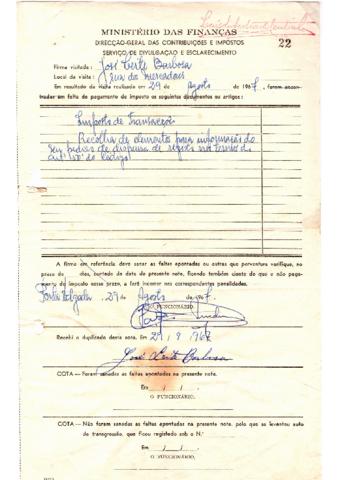 MINISTÉRIO DAS FINANÇAS
DIRECÇÃO-GERAL DAS CONTRIBUIÇÕES E IMPOSTOS
SERVIÇO DE DIVULGAÇÃO E ESCLARECIMENTO
22
Firma visitada: José Leite Barbosa
Local da visita: Rua do Mercado
Em resultado da visita realizada em 29 de Agosto de 1967, foram encon-
tradas em falta de pagamento de imposto os seguintes documentos ou artigos:
Imposto de Transacções
Recolha de elementos para informação do
seu pedido de dispensa de registo nos termos do
do Código
A firma em referência deve sanar as faltas apontadas ou outras que porventura verifique, no
prazo de dias, contado da data da presente nota, ficando também ciente de que o não paga-
mento do imposto nesse prazo, a fará incorrer nas correspondentes penalidades.
Ponta Delgada, 29 de Agosto de 1967.
O FUNCIONÁRIO,
Recebi o duplicado desta nota. Em 29/8/1967
José Leite Barbosa
COTA — Foram sanadas as faltas apontadas na presente nota.
Em / /
O FUNCIONÁRIO,
COTA — Não foram sanadas as faltas apontadas na presente nota, pelo que se levantou auto
de transgressão, que ficou registado sob o N.º
Em / /
O FUNCIONÁRIO,